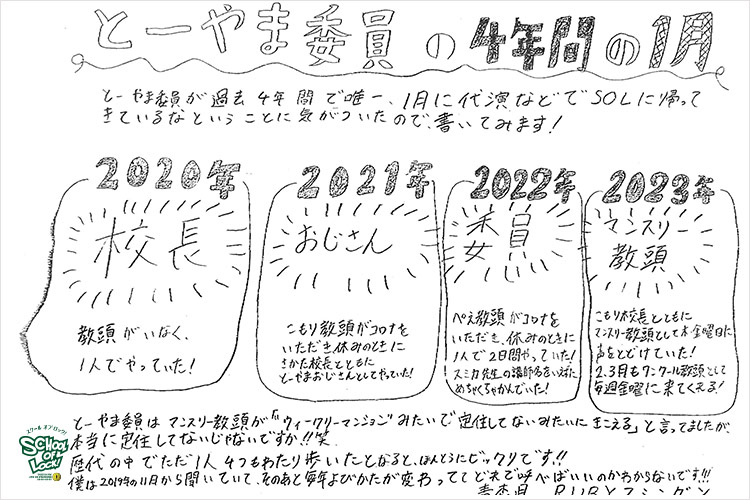 とーやま委員の4年間の1月
とーやま委員が過去4年間で唯一、1月に代演などでSOLに帰って
きているなということに気がついたので、書いてみます!
2020年
校長
教頭がいなく、
1人でやっていた!
2021年
おじさん
こもり教頭がコロナを
いただき休みのときに
さかた校長とともに
とーやまおじさんとしてやっていた!
2022年
委員
ぺえ教頭がコロナを
いただき、休みのときに
1人で2日間やっていた!
スミカ先生の講師名を言えずに
めちゃくちゃかんでいた!
2023年
マンスリー
教頭
こもり校長とともに
マンスリー教頭として木金曜日に
声をとどけていた!
2.3月もワンクール教頭として
毎週金曜に来てくれる!
とーやま委員はマンスリー教頭が「"ウィークリーマンション"みたいで定住してないみたいにきこえる」と言ってましたが、
本当に定住してないじゃないですか!!笑
歴代の中でただ1人4つもわたり歩いたとなると、ほんとうにビックリです!!
僕は2019年の11月から聞いていて、そのあと毎年よびかたが変わっててどれで呼べばいいのかわからないです!!
スクールオブロック!
SCHOOL OF LOCK!